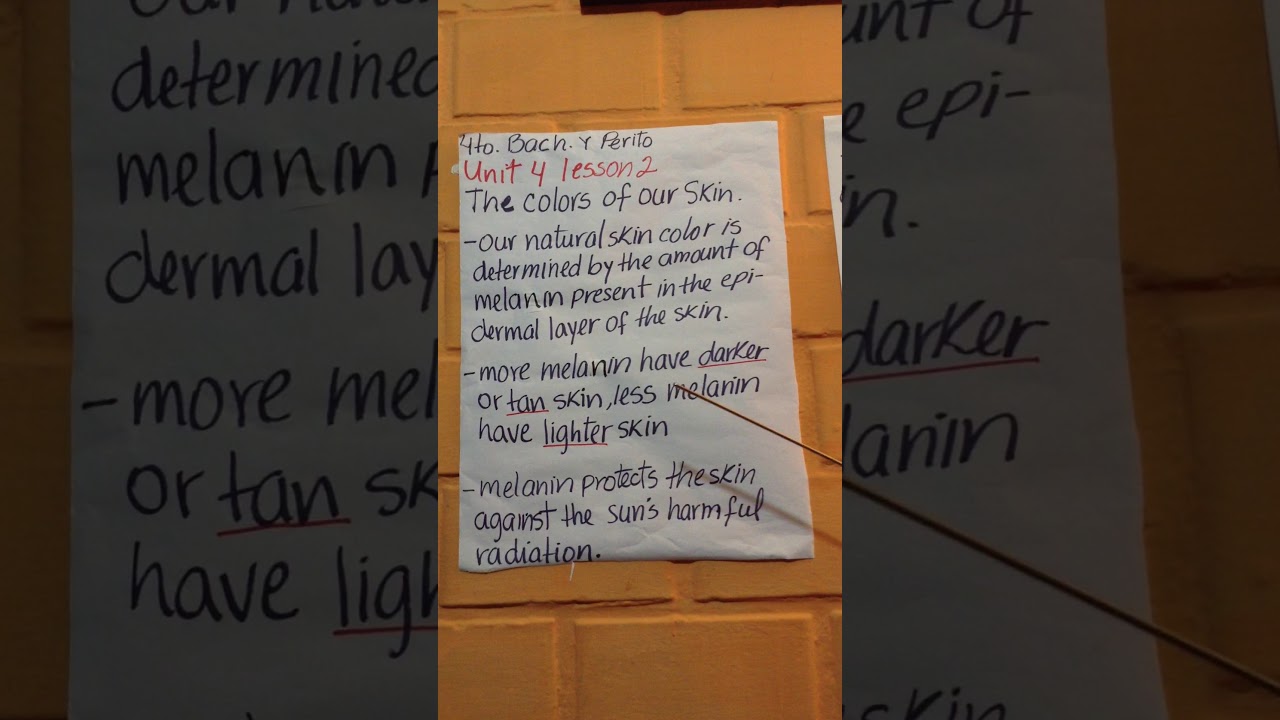 4to. Bach. Y Perito
Unit 4 lesson 2
The colors of our Skin.
- our natural skin color is
determined by the amount of
melanin present in the epi-
dermal layer of the skin.
- more melanin have darker
or tan skin, less melanin
have lighter skin
- melanin protects the skin
against the sun's harmful
radiation.